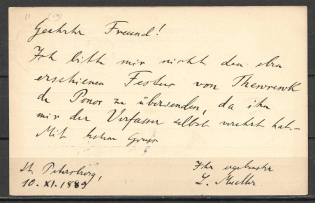 Geehrter Freund!
Ich bitte mir nicht den eben
erschienen Festus von Thewrewk
de Ponor zu übersenden, da ihn
mir der Verfasser selbst verehrt hat.
Mit bestem Gruss
St. Petersburg, Ihr ergebenster
10. XI. 1889 L. Mueller